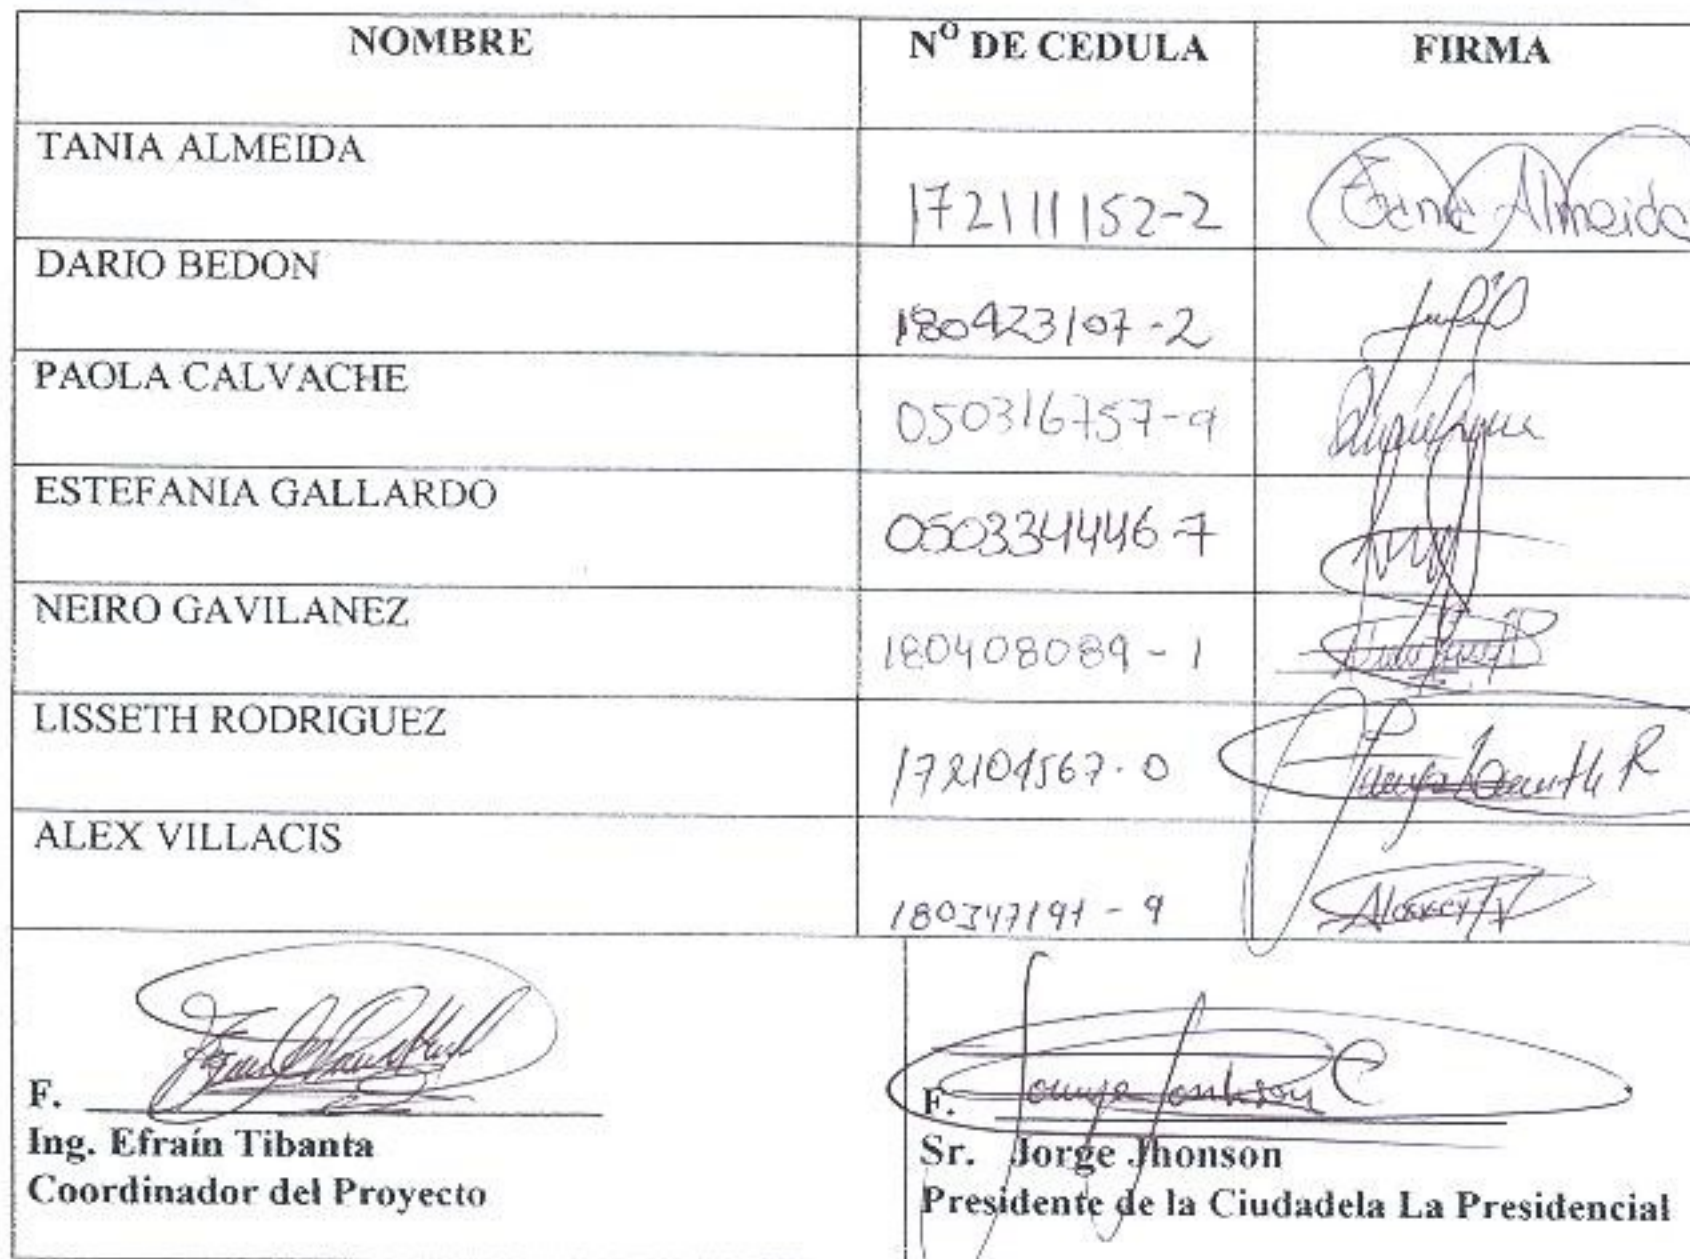 NOMBRE Nº DE CEDULA FIRMA
TANIA ALMEIDA 172111152-2 Tania Almeida
DARIO BEDON 180423107-2
PAOLA CALVACHE 050316757-9
ESTEFANIA GALLARDO 050334446-7
NEIRO GAVILANEZ 180408089-1
LISSETH RODRIGUEZ 172104567-0
ALEX VILLACIS 180347191-9
F. F.
Ing. Efraín Tibanta Sr. Jorge Jhonson
Coordinador del Proyecto Presidente de la Ciudadela La Presidencial